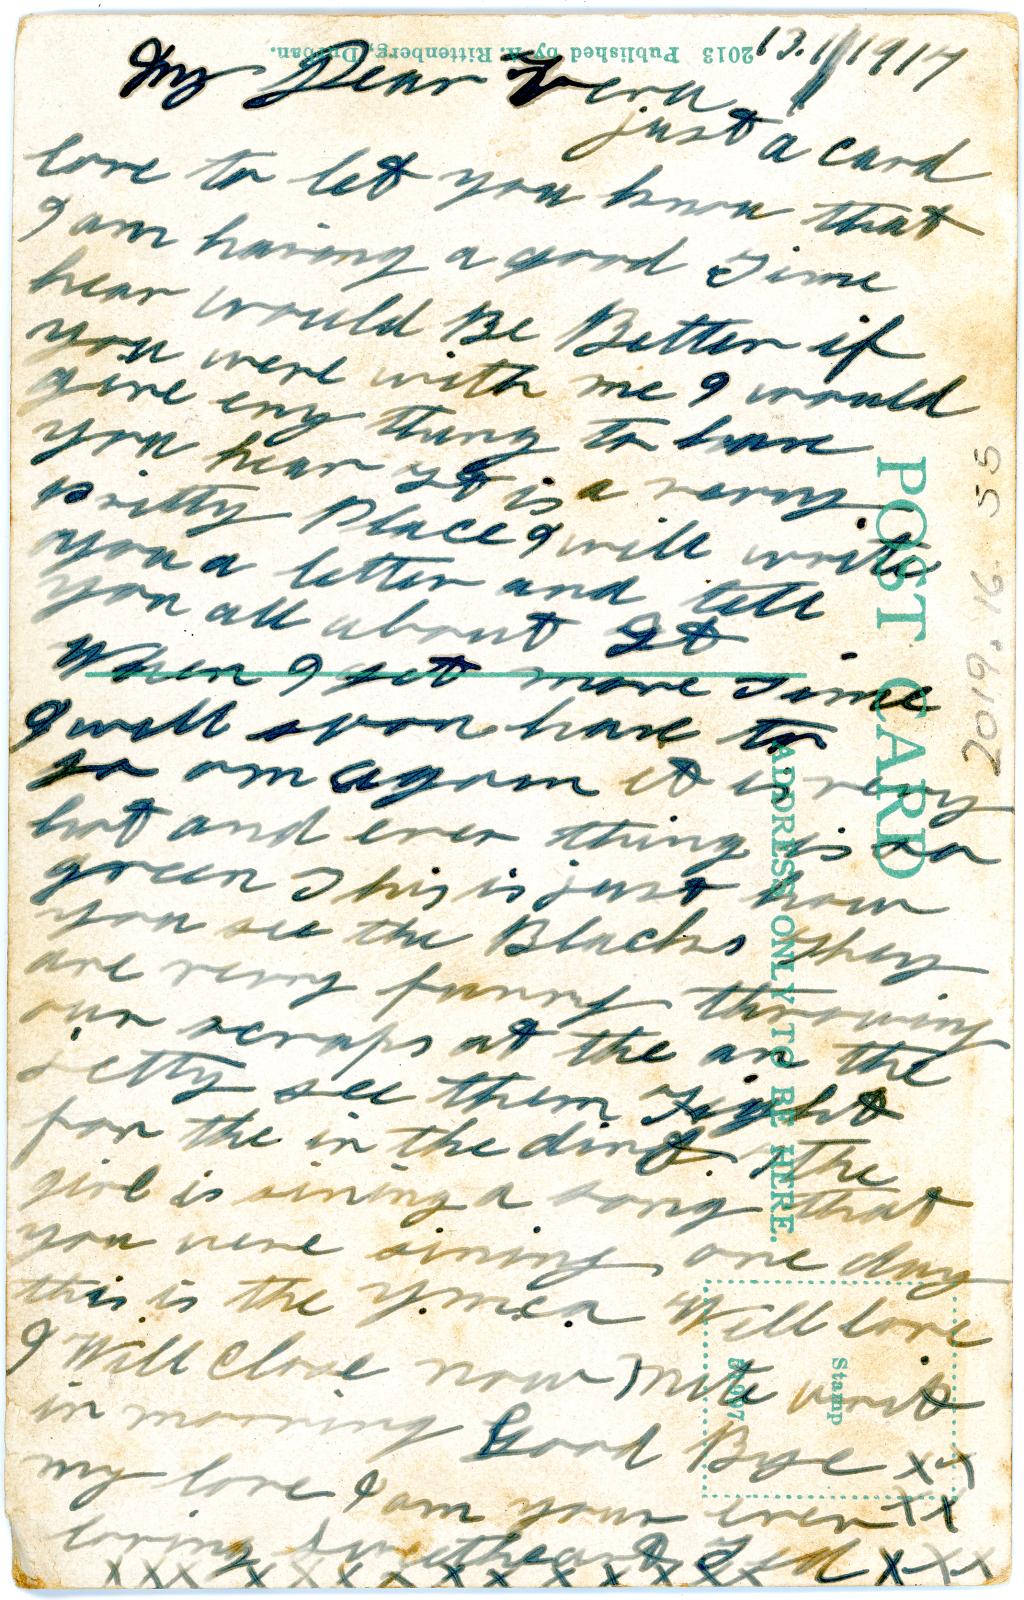 2013 Published by A. Rittenberg, Durban.
13.1 1917
My Dear Vera
just a card
love to let you know that
I am having a good Time
hear would Be Better if
you were with me I would
give eny thing to have
you hear yt is a verry
pritty Place I will write
you a letter and tell
you all about It
When I get more Time
I will soon have to
go on again it is verry
hot and ever thing is so
green This is just how
you see the Blacks they
are verry funny throwing
our scraps at the in the
sitty see them Fight
for the in the dirt. the
girl is sining a song that
you were sining one day
this is the Y.m.c.a Will love
I Will Close now mite writ
in morning Good Bye xx
my love I am your ever xx
loving Sweetheart Ted x-x-x
xxxxxxxxxxxxx
POST CARD
ADDRESS ONLY TO BE HERE.
Stamp
2019.16.55